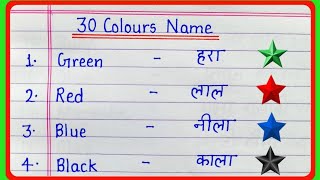 30 Colours Name
1. Green - हरा
2. Red - लाल
3. Blue - नीला
4. Black - काला